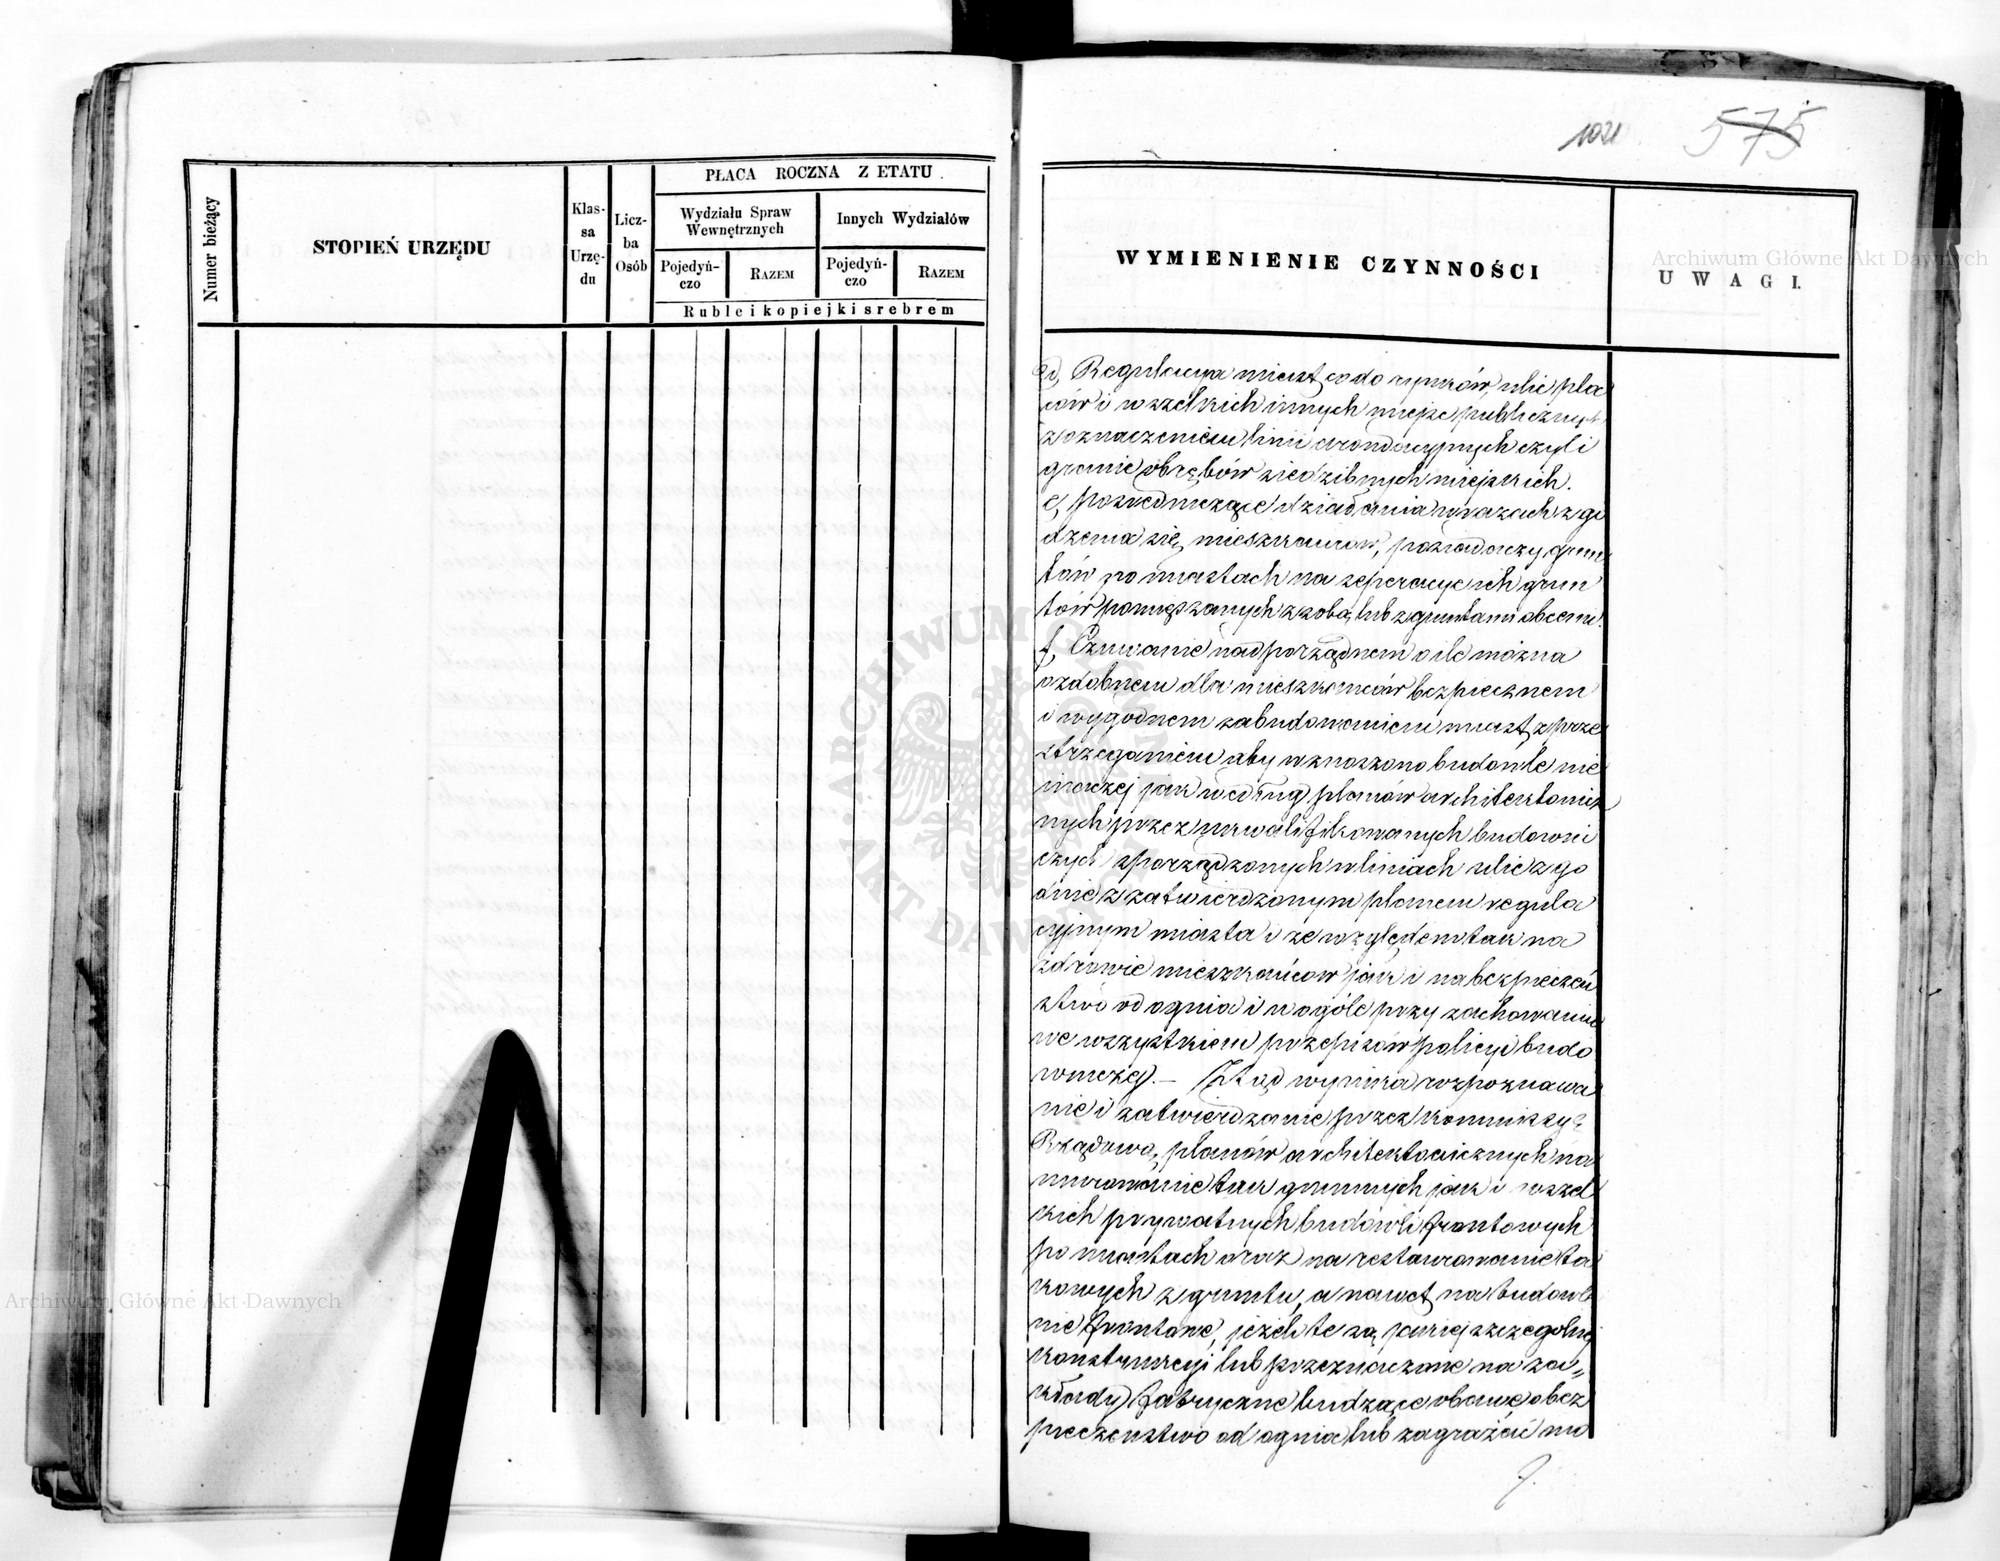 1021 575
Numer bieżący
STOPIEŃ URZĘDU
Klas-
sa
Urzę-
du
Licz-
ba
Osób
PŁACA ROCZNA Z ETATU
Wydziału Spraw
Wewnętrznych
Innych Wydziałów
Pojedyń-
czo
RAZEM
Pojedyń-
czo
RAZEM
Ruble i kopiejki srebrem
WYMIENIENIE CZYNNOŚCI
UWAGI.
d, Regulacya miast co do rynków, ulic pla
ców i wszelkich innych miejsc publicznych
z oznaczeniem linii arondacyjnych czyli
granic obrębów siedzibnych miejskich.
e, pośredniczące działania w razach zgo
dzenia się mieszkańców, posiadaczy grun
tów po miastach na separacye ich grun
tów pomięszanych z sobą lub z gruntami obcemi.
f, Czuwanie nad porządnem o ile można
ozdobnem dla mieszkańców bezpiecznem
i wygodnem zabudowaniem miast, z prze
strzeganiem aby wznoszono budowle nie
inaczej jak według planów architektonicz
nych przez ukwalifikowanych budowni
czych sporządzonych w liniach ulic zgo
dnie z zatwierdzonym planem regula
cyjnym miasta i ze względem tak na
zdrowie mieszkańców jak i na bezpieczeń
stwo od ognia i w ogóle przy zachowaniu
we wszystkiem przepisów policyi budo
wniczej. — Ztąd wynika rozpoznawa
nie i zatwierdzanie przez Kommissyą
Rządową, planów architektonicznych na
murowanie tak gminnych jak i wszel
kich prywatnych budowli frontowych
po miastach oraz na restaurowanie ta
kowych z gruntu, a nawet na budowle
nie frontowe, jeżeli te są szczególnej
konstrukcyi lub przeznaczone na za=
kłady fabryczne budzące obawę o bez
pieczeństwo od ognia lub zagrażać mo
Archiwum Główne Akt Dawnych
Archiwum Główne Akt Dawnych
ARCHIWUM GŁÓWNE AKT DAWNYCH